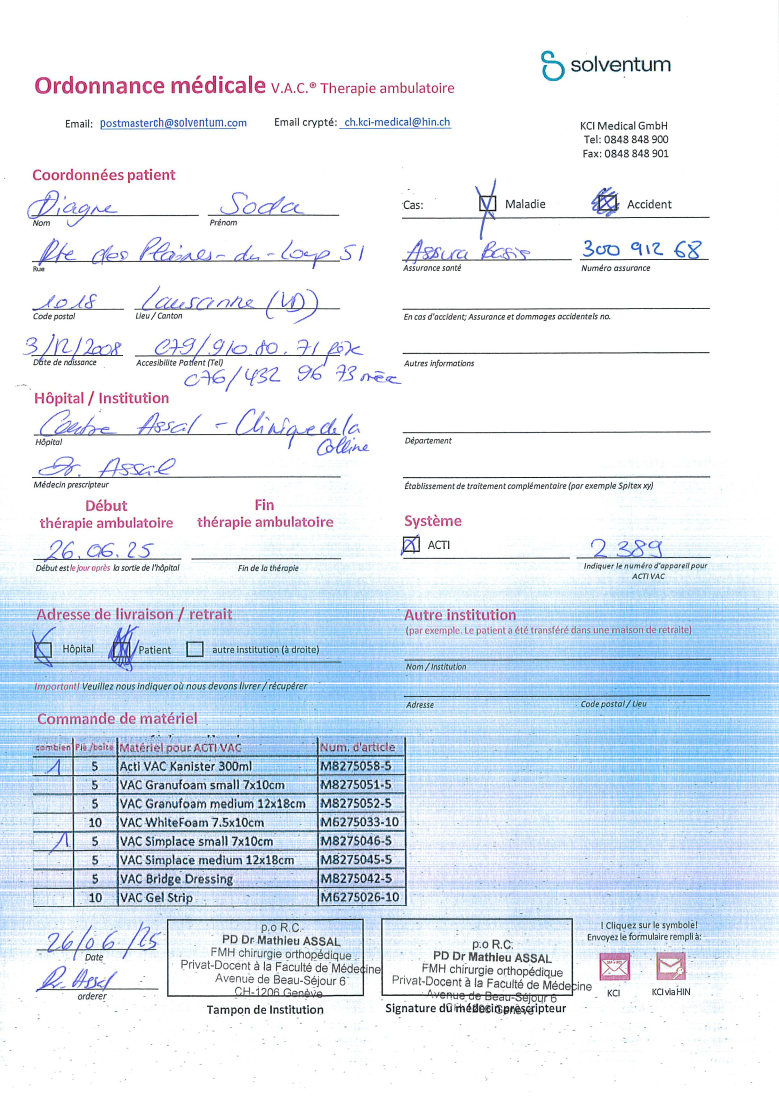 solventum
Ordonnance médicale V.A.C.® Therapie ambulatoire
Email: postmasterch@solventum.com Email crypté: ch.kci-medical@hin.ch
KCI Medical GmbH
Tel: 0848 848 900
Fax: 0848 848 901
Coordonnées patient
Diagne Soda
Nom Prénom
Cas: Maladie Accident
Rte des Plaines-du-Loup 51
Rue
Assura Basis 300 912 68
Assurance santé Numéro assurance
1018 Lausanne (VD)
Code postal Lieu / Canton
En cas d'accident; Assurance et dommages accidentels no.
3/12/2008 079/910.80.71
Date de naissance Accesibilite Patient (Tel)
076/432 96 73
Autres informations
Hôpital / Institution
Centre Assal - Clinique de la
Colline
Hôpital
Département
Dr. Assal
Médecin prescripteur
Établissement de traitement complémentaire (par exemple Spitex xy)
Début
thérapie ambulatoire
Fin
thérapie ambulatoire
Système
26.06.25
Début est le jour après la sortie de l'hôpital
Fin de la thérapie
ACTI 2389
Indiquer le numéro d'appareil pour
ACTI VAC
Adresse de livraison / retrait
Hôpital Patient autre institution (à droite)
Important! Veuillez nous indiquer où nous devons livrer / récupérer
Autre institution
(par exemple. Le patient a été transféré dans une maison de retraite)
Nom / Institution
Adresse Code postal / Lieu
Commande de matériel
combien Piè./boîte Matériel pour ACTI VAC Num. d'article
1 5 Acti VAC Kanister 300ml M8275058-5
5 VAC Granufoam small 7x10cm M8275051-5
5 VAC Granufoam medium 12x18cm M8275052-5
10 VAC WhiteFoam 7.5x10cm M6275033-10
1 5 VAC Simplace small 7x10cm M8275046-5
5 VAC Simplace medium 12x18cm M8275045-5
5 VAC Bridge Dressing M8275042-5
10 VAC Gel Strip M6275026-10
26/06/25
Date
Assal
orderer
p.o R.C.
PD Dr Mathieu ASSAL
FMH chirurgie orthopédique
Privat-Docent à la Faculté de Médecine
Avenue de Beau-Séjour 6
CH-1206 Genève
Tampon de Institution
p.o R.C.
PD Dr Mathieu ASSAL
FMH chirurgie orthopédique
Privat-Docent à la Faculté de Médecine
Avenue de Beau-Séjour 6
CH-1206 Genève
Signature du médecin prescripteur
! Cliquez sur le symbole!
Envoyez le formulaire rempli à:
KCI KCI via HIN